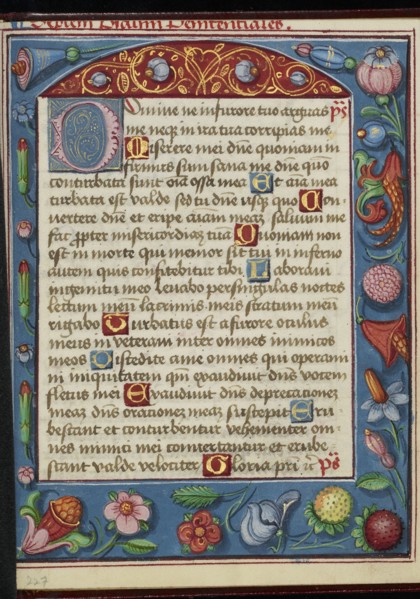 Septem Psalmi Penitentiales.
Domine ne in furore tuo arguas ps
me neq3 in ira tua corripias me
Miserere mei dñe quoniam in
firmus sum sana me dñe quo
conturbata sunt oīa ossa mea Et aīa mea
turbata est valde sed tu dñe usq3 quo Con
vertere dñe et eripe aīam meaz salvum me
fac ꝓpter misericordiaz tuā Quoniam non
est in morte qui memor sit tui in inferno
autem quis confitebitur tibi Laboravi
in gemitu meo levabo per singulas noctes
lectum meū lacrimis meis stratum meū
rigabo Turbatus est a furore oculus
meus in veteravi inter omnes inimicos
meos Discedite a me omnes qui operami
ni iniquitatem qm̄ exaudivit dñs vocem
fletus mei Exaudivit dñs deprecationez
meaz dñs orationez meaz suscepit Eru
bescant et conturbentur vehementer om-
nes inimici mei convertantur et erube
scant valde velociter Gloria pri ps
227